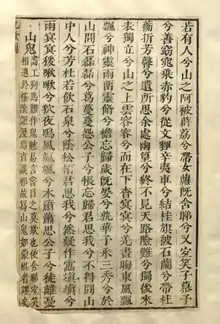 若有人兮山之阿被薜荔兮帶女蘿既含睇兮又宜笑子慕予
兮善窈窕乘赤豹兮從文貍辛夷車兮結桂旗被石蘭兮帶杜
衡折芳馨兮遺所思余處幽篁兮終不見天路險難兮獨後來
表獨立兮山之上雲容容兮而在下杳冥冥兮羌晝晦東風飄
飄兮神靈雨留靈脩兮憺忘歸歲既晏兮孰華予采三秀兮於
山間石磊磊兮葛蔓蔓怨公子兮悵忘歸君思我兮不得閒山
中人兮芳杜若飲石泉兮蔭松柏君思我兮然疑作靁填填兮
雨冥冥猨啾啾兮狖夜鳴風颯颯兮木蕭蕭思公子兮徒離憂
山鬼